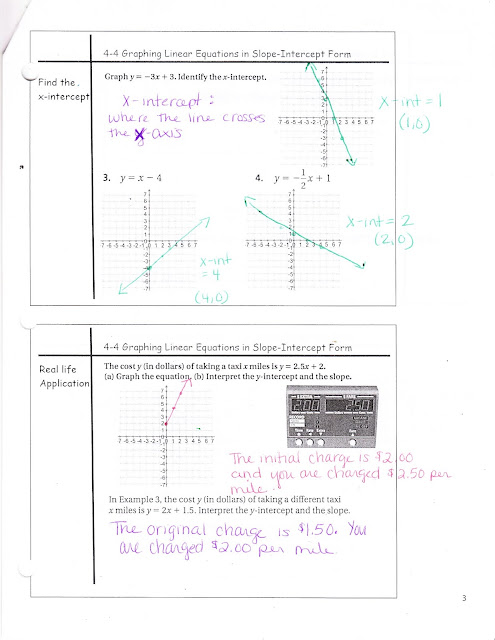 4-4 Graphing Linear Equations in Slope-Intercept Form
Find the.
x-intercept
Graph y = −3x + 3. Identify the x-intercept.
X-intercept:
where the line crosses
the x-axis
x-int = 1
(1,0)
3. y = x − 4
x-int
= 4
(4,0)
4. y = −1/2 x + 1
x-int = 2
(2,0)
4-4 Graphing Linear Equations in Slope-Intercept Form
Real life
Application
The cost y (in dollars) of taking a taxi x miles is y = 2.5x + 2.
(a) Graph the equation. (b) Interpret the y-intercept and the slope.
EXTRA FARE
2.00 2.50
The initial charge is $2.00
and you are charged $2.50 per
mile.
In Example 3, the cost y (in dollars) of taking a different taxi
x miles is y = 2x + 1.5. Interpret the y-intercept and the slope.
The original charge is $1.50. You
are charged $2.00 per mile.
3